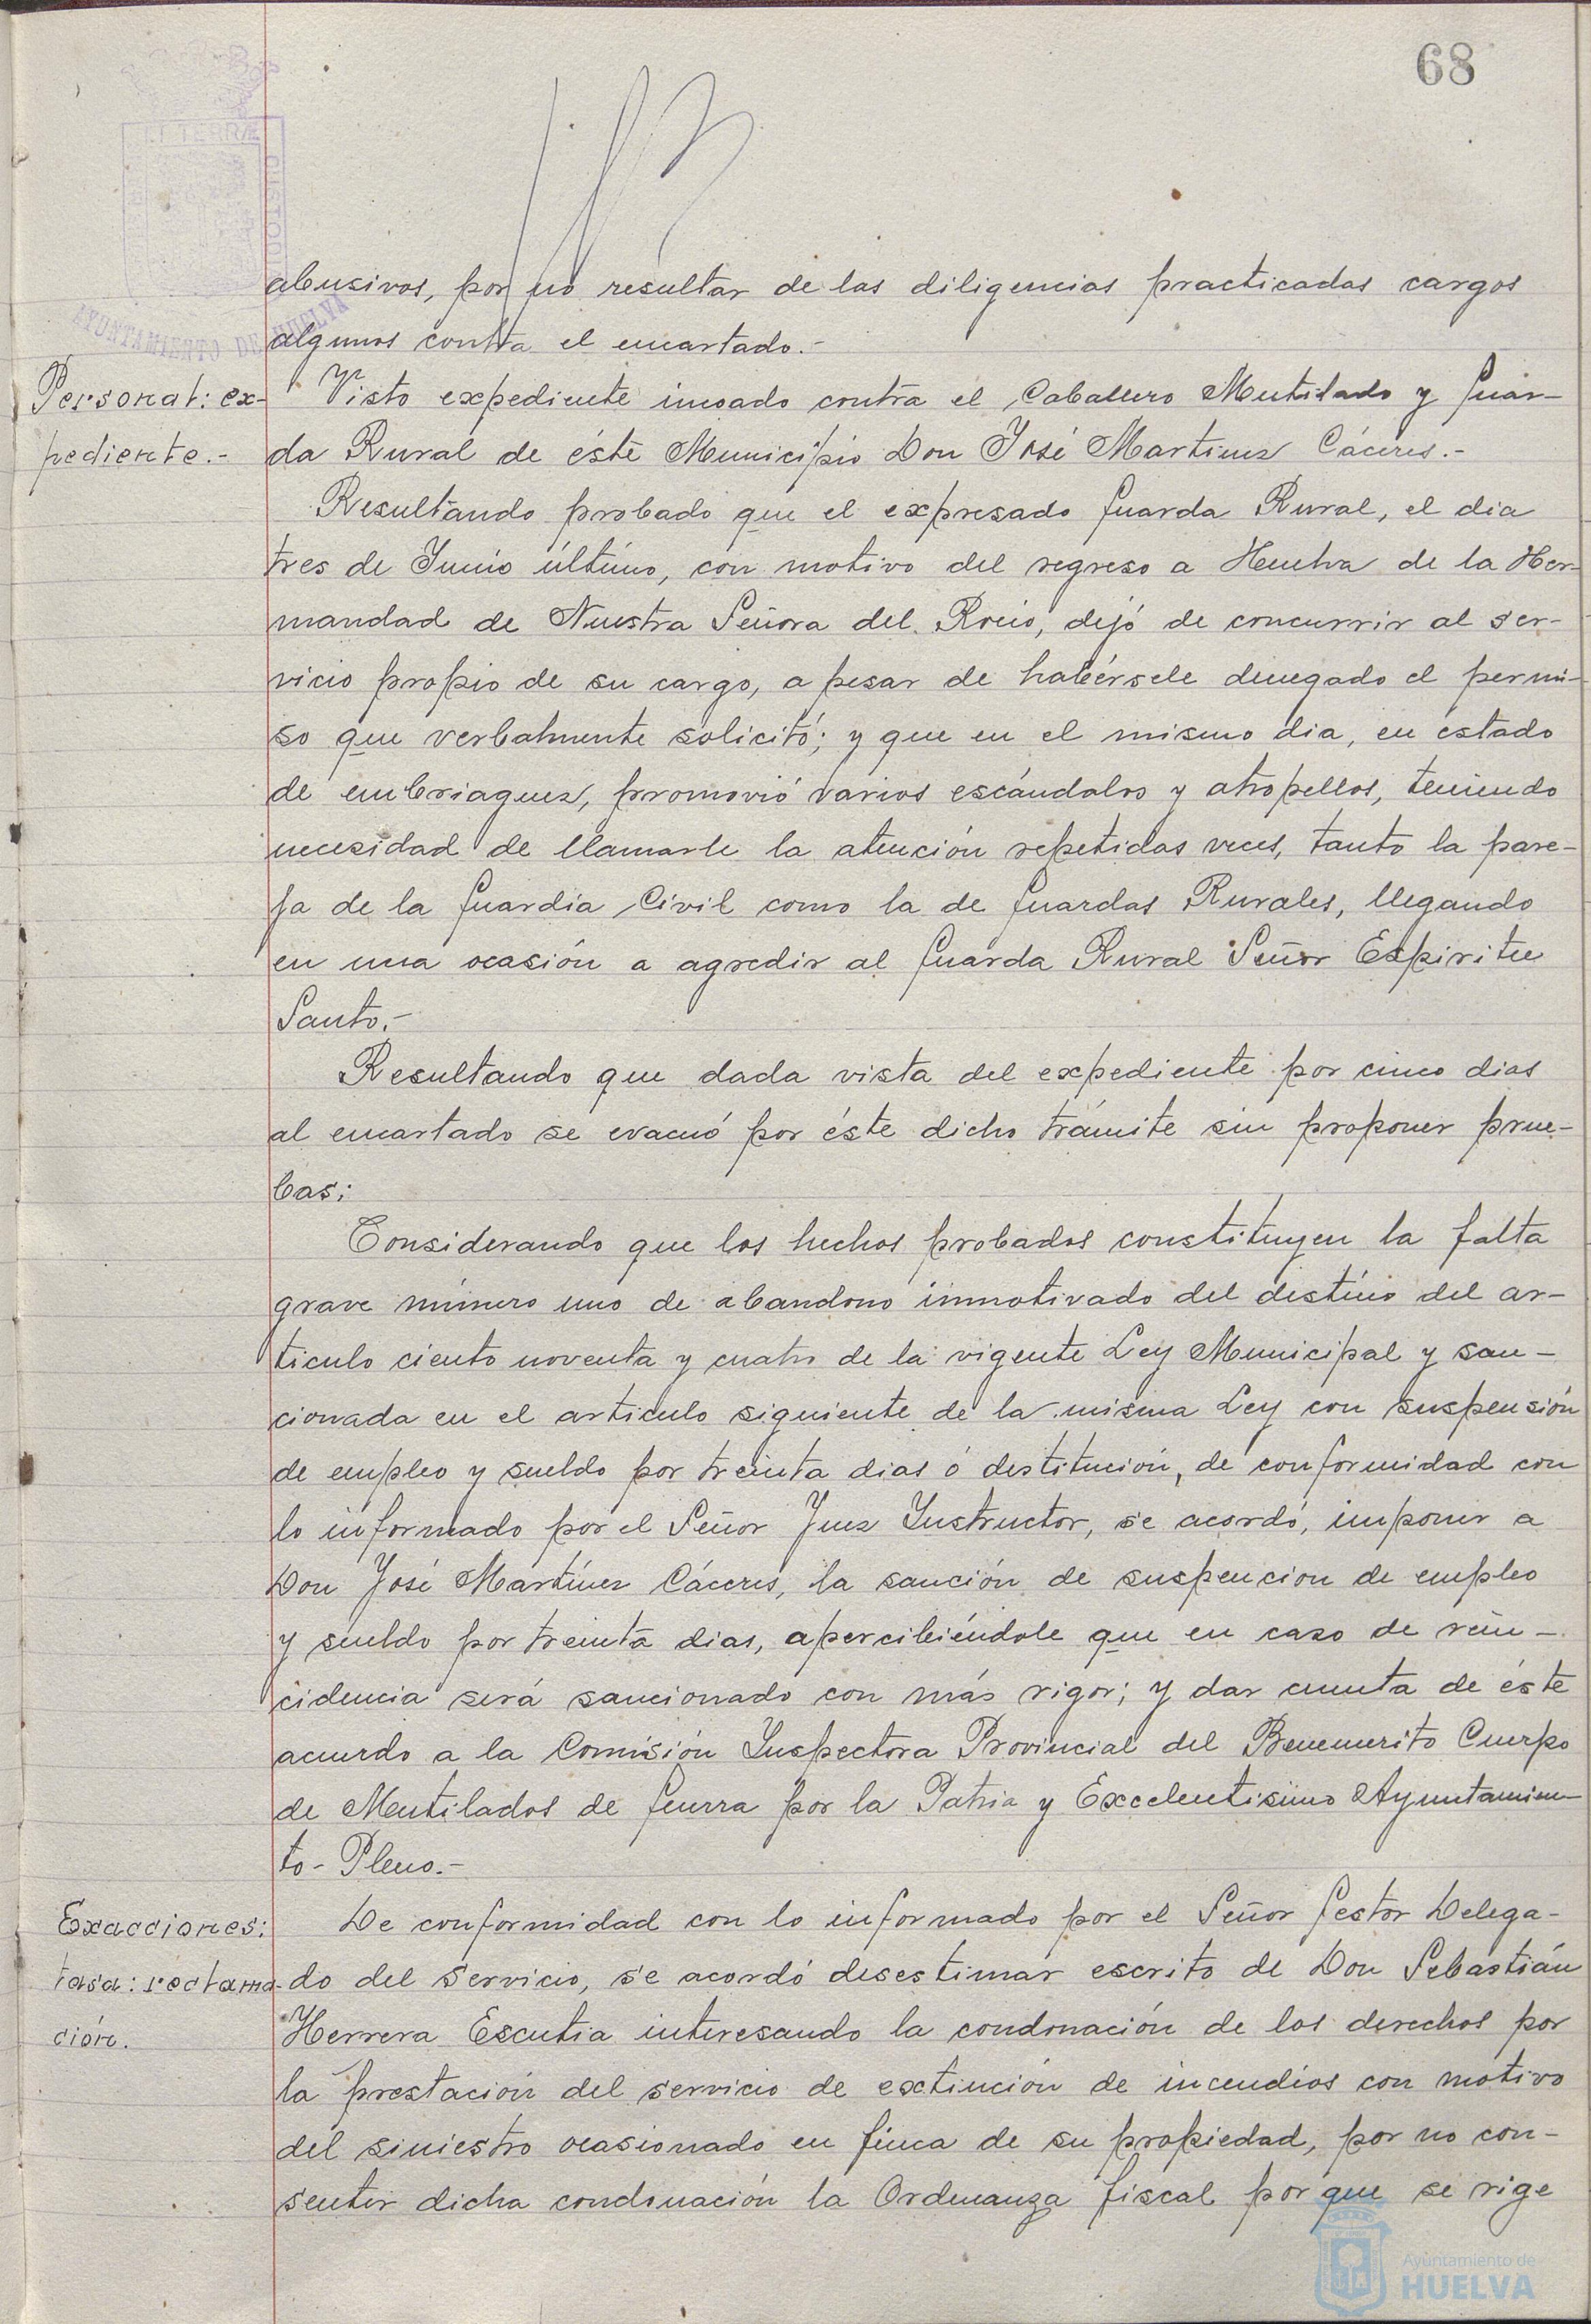 68
TERRÆ
CUSTODIA
AYUNTAMIENTO DE HUELVA
abusivos, por no resultar de las diligencias practicadas cargos
algunos contra el encartado.-
Personal: ex-
pediente.-
Visto expediente incoado contra el Caballero Mutilado y Guar-
da Rural de éste Municipio Don José Martinez Cáceres.-
Resultando probado que el expresado Guarda Rural, el dia
tres de Junio último, con motivo del regreso a Huelva de la Her-
mandad de Nuestra Señora del Rocio, dejó de concurrir al ser-
vicio propio de su cargo, a pesar de habérsele denegado el permi-
so que verbalmente solicitó; y que en el mismo dia, en estado
de embriaguez, promovió varios escándalos y atropellos, teniendo
necesidad de llamarle la atención repetidas veces, tanto la pare-
ja de la Guardia Civil como la de Guardas Rurales, llegando
en una ocasión a agredir al Guarda Rural Señor Espiritu
Santo.-
Resultando que dada vista del expediente por cinco dias
al encartado se evacuó por éste dicho trámite sin proponer prue-
bas;
Considerando que los hechos probados constituyen la falta
grave número uno de abandono inmotivado del destino del ar-
ticulo ciento noventa y cuatro de la vigente Ley Municipal y san-
cionada en el articulo siguiente de la misma Ley con suspensión
de empleo y sueldo por treinta dias ó destitución, de conformidad con
lo informado por el Señor Juez Instructor, se acordó, imponer a
Don José Martínez Cáceres, la sanción de suspencion de empleo
y sueldo por treinta dias, apercibiéndole que en caso de rein-
cidencia será sancionado con más rigor; y dar cuenta de éste
acuerdo a la Comisión Inspectora Provincial del Benemerito Cuerpo
de Mutilados de Guerra por la Patria y Excelentisimo Ayuntamien-
to-Pleno.-
Exacciones:
tasa: reclama-
ción.
De conformidad con lo informado por el Señor Gestor Delega-
do del Servicio, se acordó desestimar escrito de Don Sebastián
Herrera Escutia interesando la condonación de los derechos por
la prestación del servicio de extinción de incendios con motivo
del siniestro ocasionado en finca de su propiedad, por no con-
sentir dicha condonación la Ordenanza fiscal porque se rige
Ayuntamiento de
HUELVA